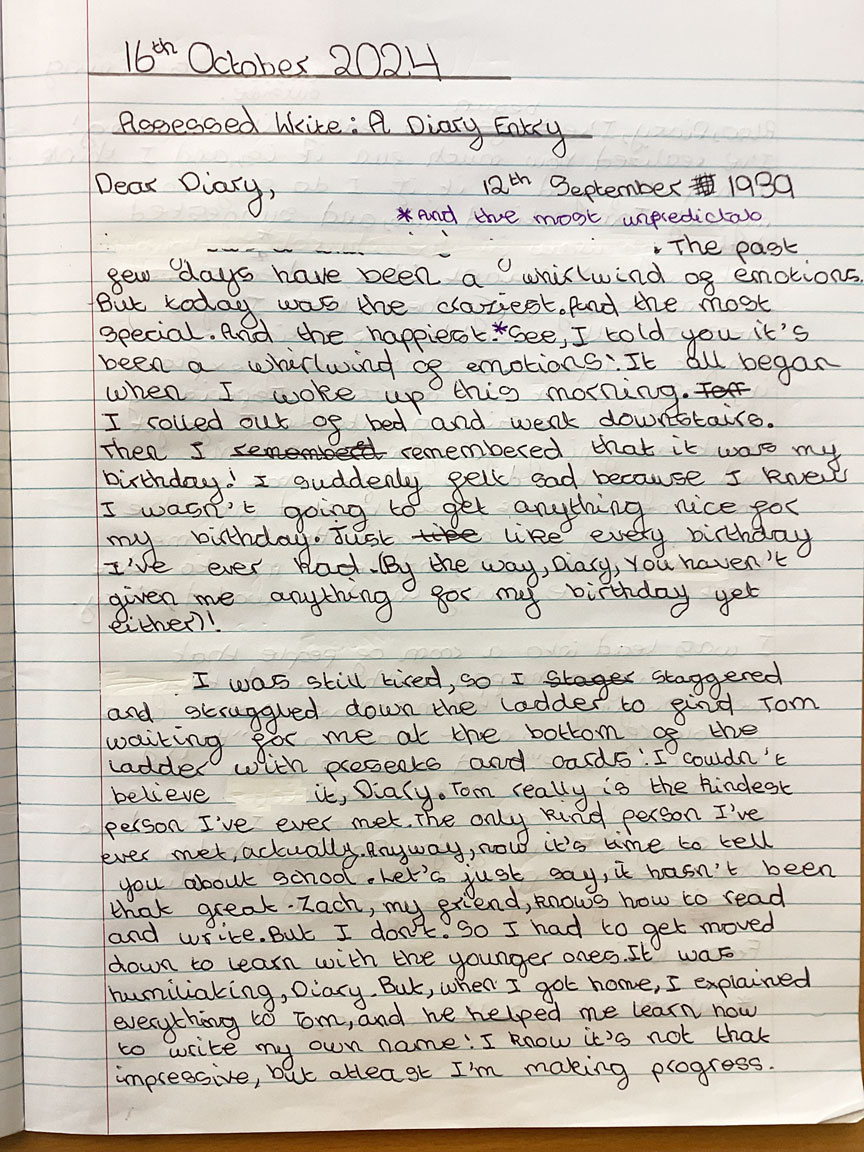 16th October 2024
Assessed Write: A Diary Entry
Dear Diary, 12th September 1939
*And the most unpredictab
. The past
few days have been a whirlwind of emotions.
But today was the craziest. And the most
special. And the happiest.* See, I told you it's
been a whirlwind of emotions! It all began
when I woke up this morning. Toff
I rolled out of bed and went downstairs.
Then I remembered remembered that it was my
birthday! I suddenly felt sad because I knew
I wasn't going to get anything nice for
my birthday. Just like like every birthday
I've ever had. (By the way, Diary, You haven't
given me anything for my birthday yet
either)!
I was still tired, so I stager staggered
and struggled down the ladder to find Tom
waiting for me at the bottom of the
ladder with presents and cards! I couldn't
believe it, Diary. Tom really is the kindest
person I've ever met. The only kind person I've
ever met, actually. Anyway, now it's time to tell
you about school. Let's just say, it hasn't been
that great. Zach, my friend, knows how to read
and write. But I don't. So I had to get moved
down to learn with the younger ones. It was
humiliating, Diary. But, when I got home, I explained
everything to Tom, and he helped me learn how
to write my own name! I know it's not that
impressive, but atleast I'm making progress.